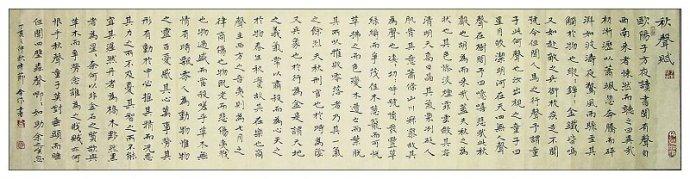 秋聲賦
歐陽子方夜讀書聞有聲自
西南來者悚然而聽之曰異哉
初淅瀝以蕭颯忽奔騰而砰
湃如波濤夜驚風雨驟至其
觸於物也鏦鏦錚錚金鐵皆鳴
又如赴敵之兵銜枚疾走不聞
號令但聞人馬之行聲予謂童
子此何聲也汝出視之童子曰
星月皎潔明河在天四無人聲
聲在樹間予曰噫嘻悲哉此秋
聲也胡為而來哉蓋夫秋之為
狀也其色慘淡煙霏雲斂其容
清明天高日晶其氣慄冽砭人
肌骨其意蕭條山川寂寥故其
為聲也淒淒切切呼號憤發豐草
綠縟而爭茂佳木蔥蘢而可悅
草拂之而色變木遭之而葉脫
其所以摧敗零落者乃其一氣
之餘烈夫秋刑官也於時為陰
又兵象也於行為金是謂天地
之義氣常以肅殺而為心天之
於物春生秋實故其在樂也商
聲主西方之音夷則為七月之
律商傷也物既老而悲傷夷戮
也物過盛而當殺嗟乎草木無
情有時飄零人為動物惟物
之靈百憂感其心萬事勞其
形有動於中必搖其精而況思
其力之所不及憂其智之所不能
宜其渥然丹者為槁木黟然黑
者為星星奈何以非金石之質欲與
草木而爭榮念誰為之戕賊亦何
恨乎秋聲童子莫對垂頭而睡
但聞四壁蟲聲唧唧如助余之嘆息